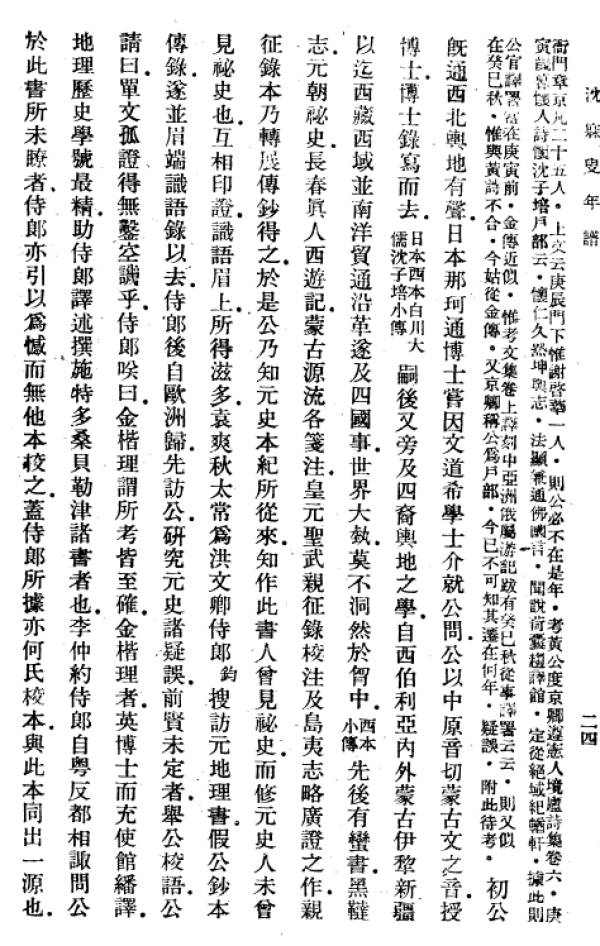 沈寐叟年譜
二四
衙門章京凡二十五人。上文云庚辰門下惟謝啓華一人。則公必不在是年。考黃公度京卿遵憲人境廬詩集卷六。庚
寅歲暮懷人詩懷沈子培戶部云。懷仁久熟坤輿志。法顯兼通佛國言。聞說荷囊趨譯館。定從絕域紀輶軒。據此則
公官譯署當在庚寅前。金傳近似。惟考文集卷上譯刻中亞洲俄屬游記跋有癸巳秋從事譯署云云。則又似
在癸巳秋。惟與黃詩不合。今姑從金傳。又京卿稱公爲戶部。今已不可知其遷在何年。疑誤。附此待考。初公
既通西北輿地有聲。日本那珂通博士嘗因文道希學士介就公問。公以中原音切蒙古文之音。授
博士。博士錄寫而去。日本西本白川大儒沈子培小傳嗣後又旁及四裔輿地之學。自西伯利亞內外蒙古伊犂新疆
以迄西藏西域並南洋貿通沿革。遂及四國事。世界大埶。莫不洞然於胷中。西本小傳先後有蠻書。黑韃
志。元朝祕史。長春眞人西遊記。蒙古源流各箋注。皇元聖武親征錄校注及島夷志略廣證之作。親
征錄本乃轉展傳鈔得之。於是公乃知元史本紀所從來。知作此書人曾見祕史。而修元史人未曾
見祕史也。互相印證。識語眉上。所得滋多。袁爽秋太常爲洪文卿侍郎鈞搜訪元地理書。假公鈔本
傳錄。遂並眉端識語錄以去。侍郎後自歐洲歸。先訪公。研究元史諸疑誤。前賢未定者。舉公校語。公
請曰單文孤證得無鑿空譏乎。侍郎唉曰。金楷理謂所考皆至確。金楷理者。英博士而充使館繙譯。
地理歷史學號最精。助侍郎譯述撰施特多桑貝勒津諸書者也。李仲約侍郎自粵反都相諏問公
於此書所未瞭者。侍郎亦引以爲憾而無他本校之。蓋侍郎所據亦何氏校本。與此本同出一源也。